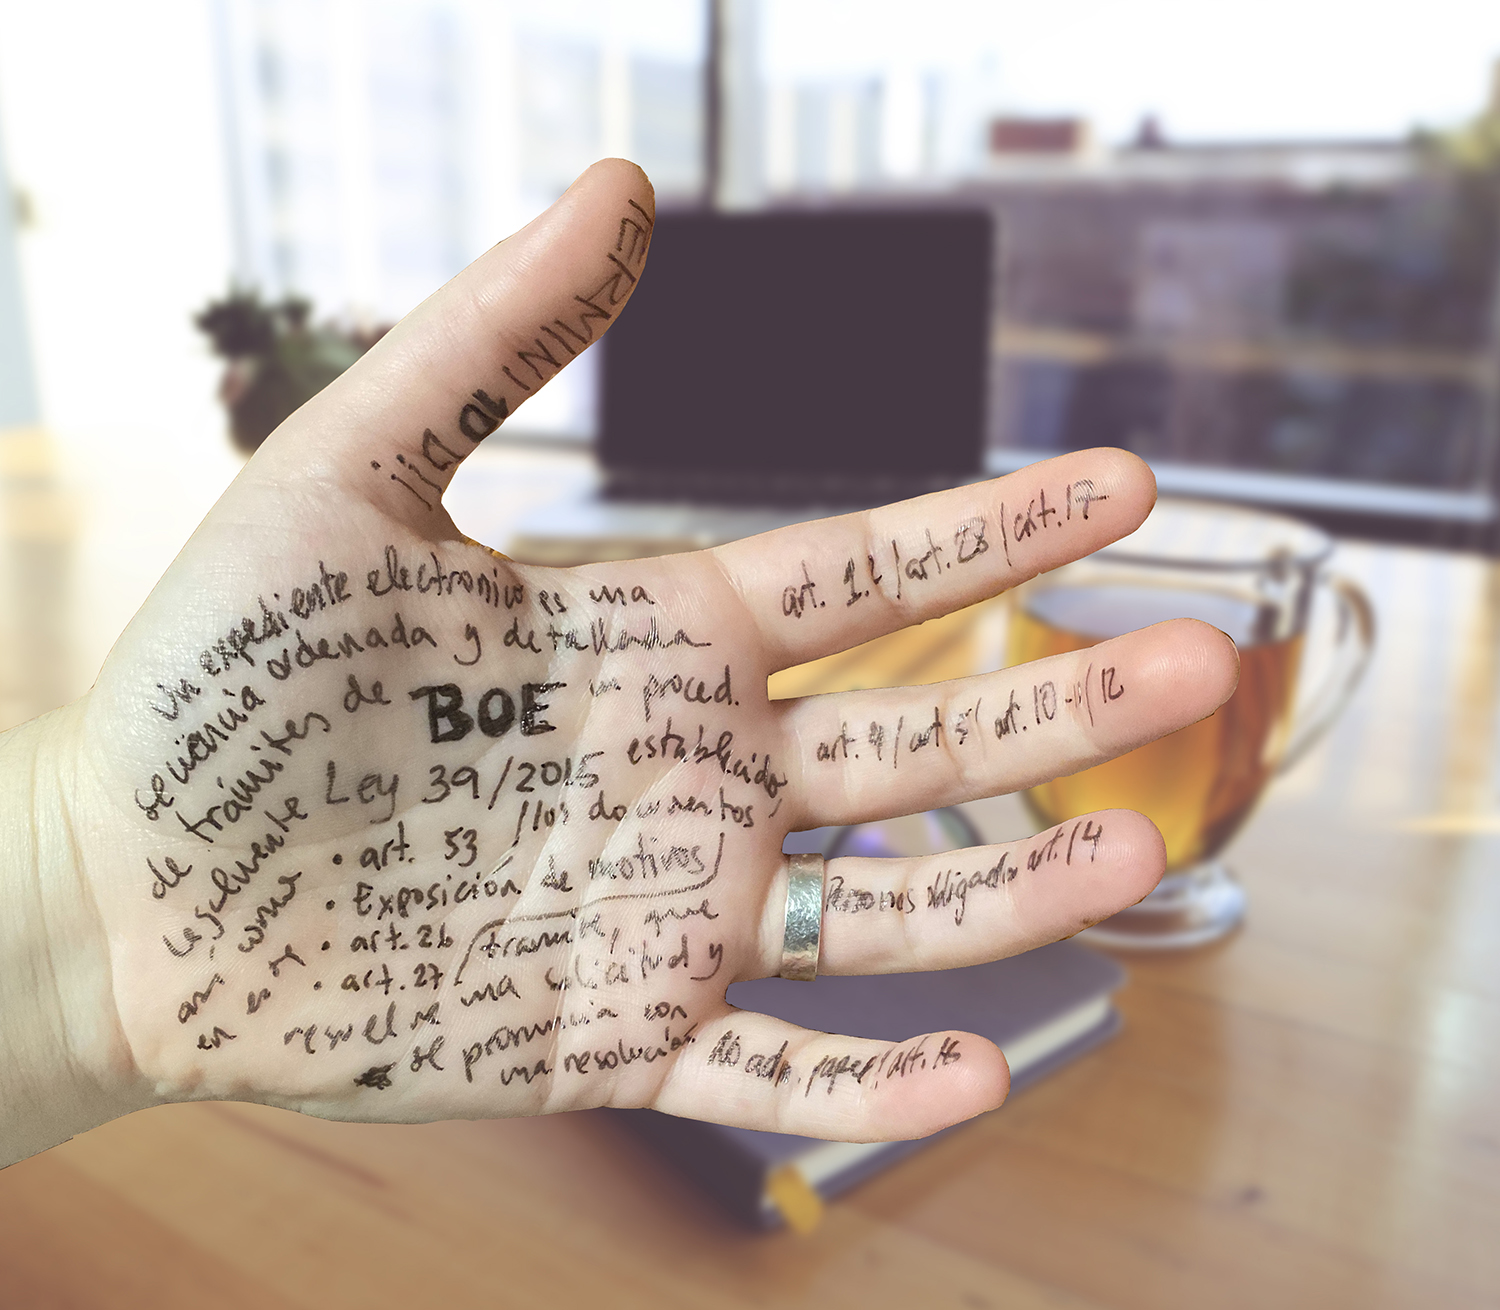 TERMINADA!!
Un expediente electronico es una
secuencia ordenada y detallada
de trámites de BOE un proced.
legalmente Ley 39/2015 establecido,
así como los documentos
en
• art. 53
• Exposición de motivos
• art. 26 trámite, que
• art. 27
resuelve una solicitud y
se pronuncia con
una resolución
art. 1.2 / art. 28 / art. 17
art. 9 / art 5 / art. 10-11/12
Personas obligadas art. 14
NO adm. papel! art. 16